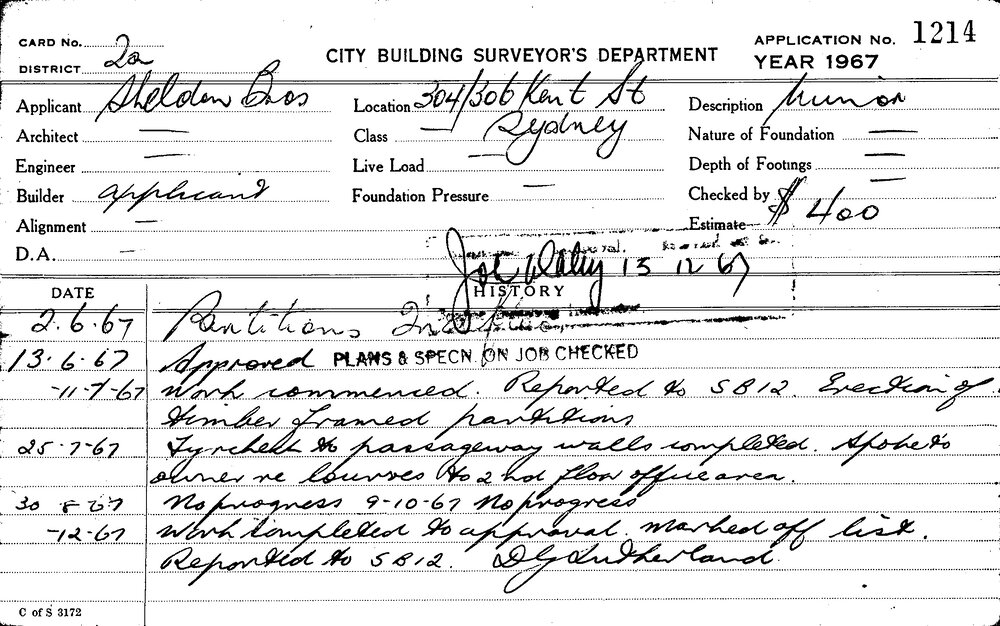 CARD No. 2a
DISTRICT
CITY BUILDING SURVEYOR'S DEPARTMENT
APPLICATION No. 1214
YEAR 1967
Applicant Sheldon Bros
Location 304/306 Kent St
Sydney
Description Minor
Architect —
Class —
Nature of Foundation —
Engineer —
Live Load —
Depth of Footings —
Builder applicant
Foundation Pressure —
Checked by
Alignment —
Estimate $400
D.A. —
13 12 67
DATE
HISTORY
2.6.67 Partitions
13.6.67 Approved PLANS & SPECN. ON JOB CHECKED
-11-7-67 Work commenced. Reported to SB12. Erection of
timber framed partitions
25-7-67 Gyrock to passageway walls completed. Spoke to
owner re louvres to 2nd floor office area.
30 8 67 No progress 9-10-67 No progress
-12-67 Work completed to approval. Marked off list.
Reported to SB12. DG Sutherland
C of S 3172